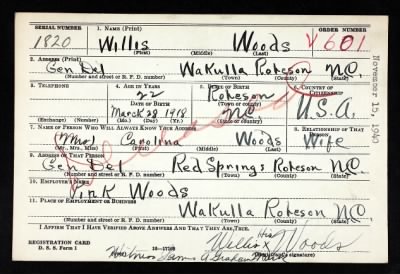 SERIAL NUMBER 1. NAME (Print) ORDER NUMBER
1820 Willis Woods V601
(First) (Middle) (Last)
2. ADDRESS (Print)
Gen Del Wakulla Robeson N.C.
(Number and street or R. F. D. number) (Town) (County) (State)
3. TELEPHONE 4. AGE IN YEARS 5. PLACE OF BIRTH 6. COUNTRY OF CITIZENSHIP
22 Robeson
DATE OF BIRTH (Town or county)
March 28 1918 N.C. U.S.A.
(Exchange) (No.) (Mo.) (Day) (Yr.) (State or country)
7. NAME OF PERSON WHO WILL ALWAYS KNOW YOUR ADDRESS 8. RELATIONSHIP OF THAT PERSON
(Mrs) Carolina Woods Wife
(Mr., Mrs., Miss) (First) (Middle) (Last)
9. ADDRESS OF THAT PERSON
Gen Del Red Springs Robeson N.C.
(Number and street or R. F. D. number) (Town) (County) (State)
10. EMPLOYER'S NAME
Pink Woods
11. PLACE OF EMPLOYMENT OR BUSINESS
Wakulla Robeson N.C.
(Number and street or R. F. D. number) (Town) (County) (State)
I AFFIRM THAT I HAVE VERIFIED ABOVE ANSWERS AND THAT THEY ARE TRUE.
His
Willis X Woods
REGISTRATION CARD
D. S. S. Form 1 16-17105 (Registrant's signature)
Witness A Graham
November 15, 1940